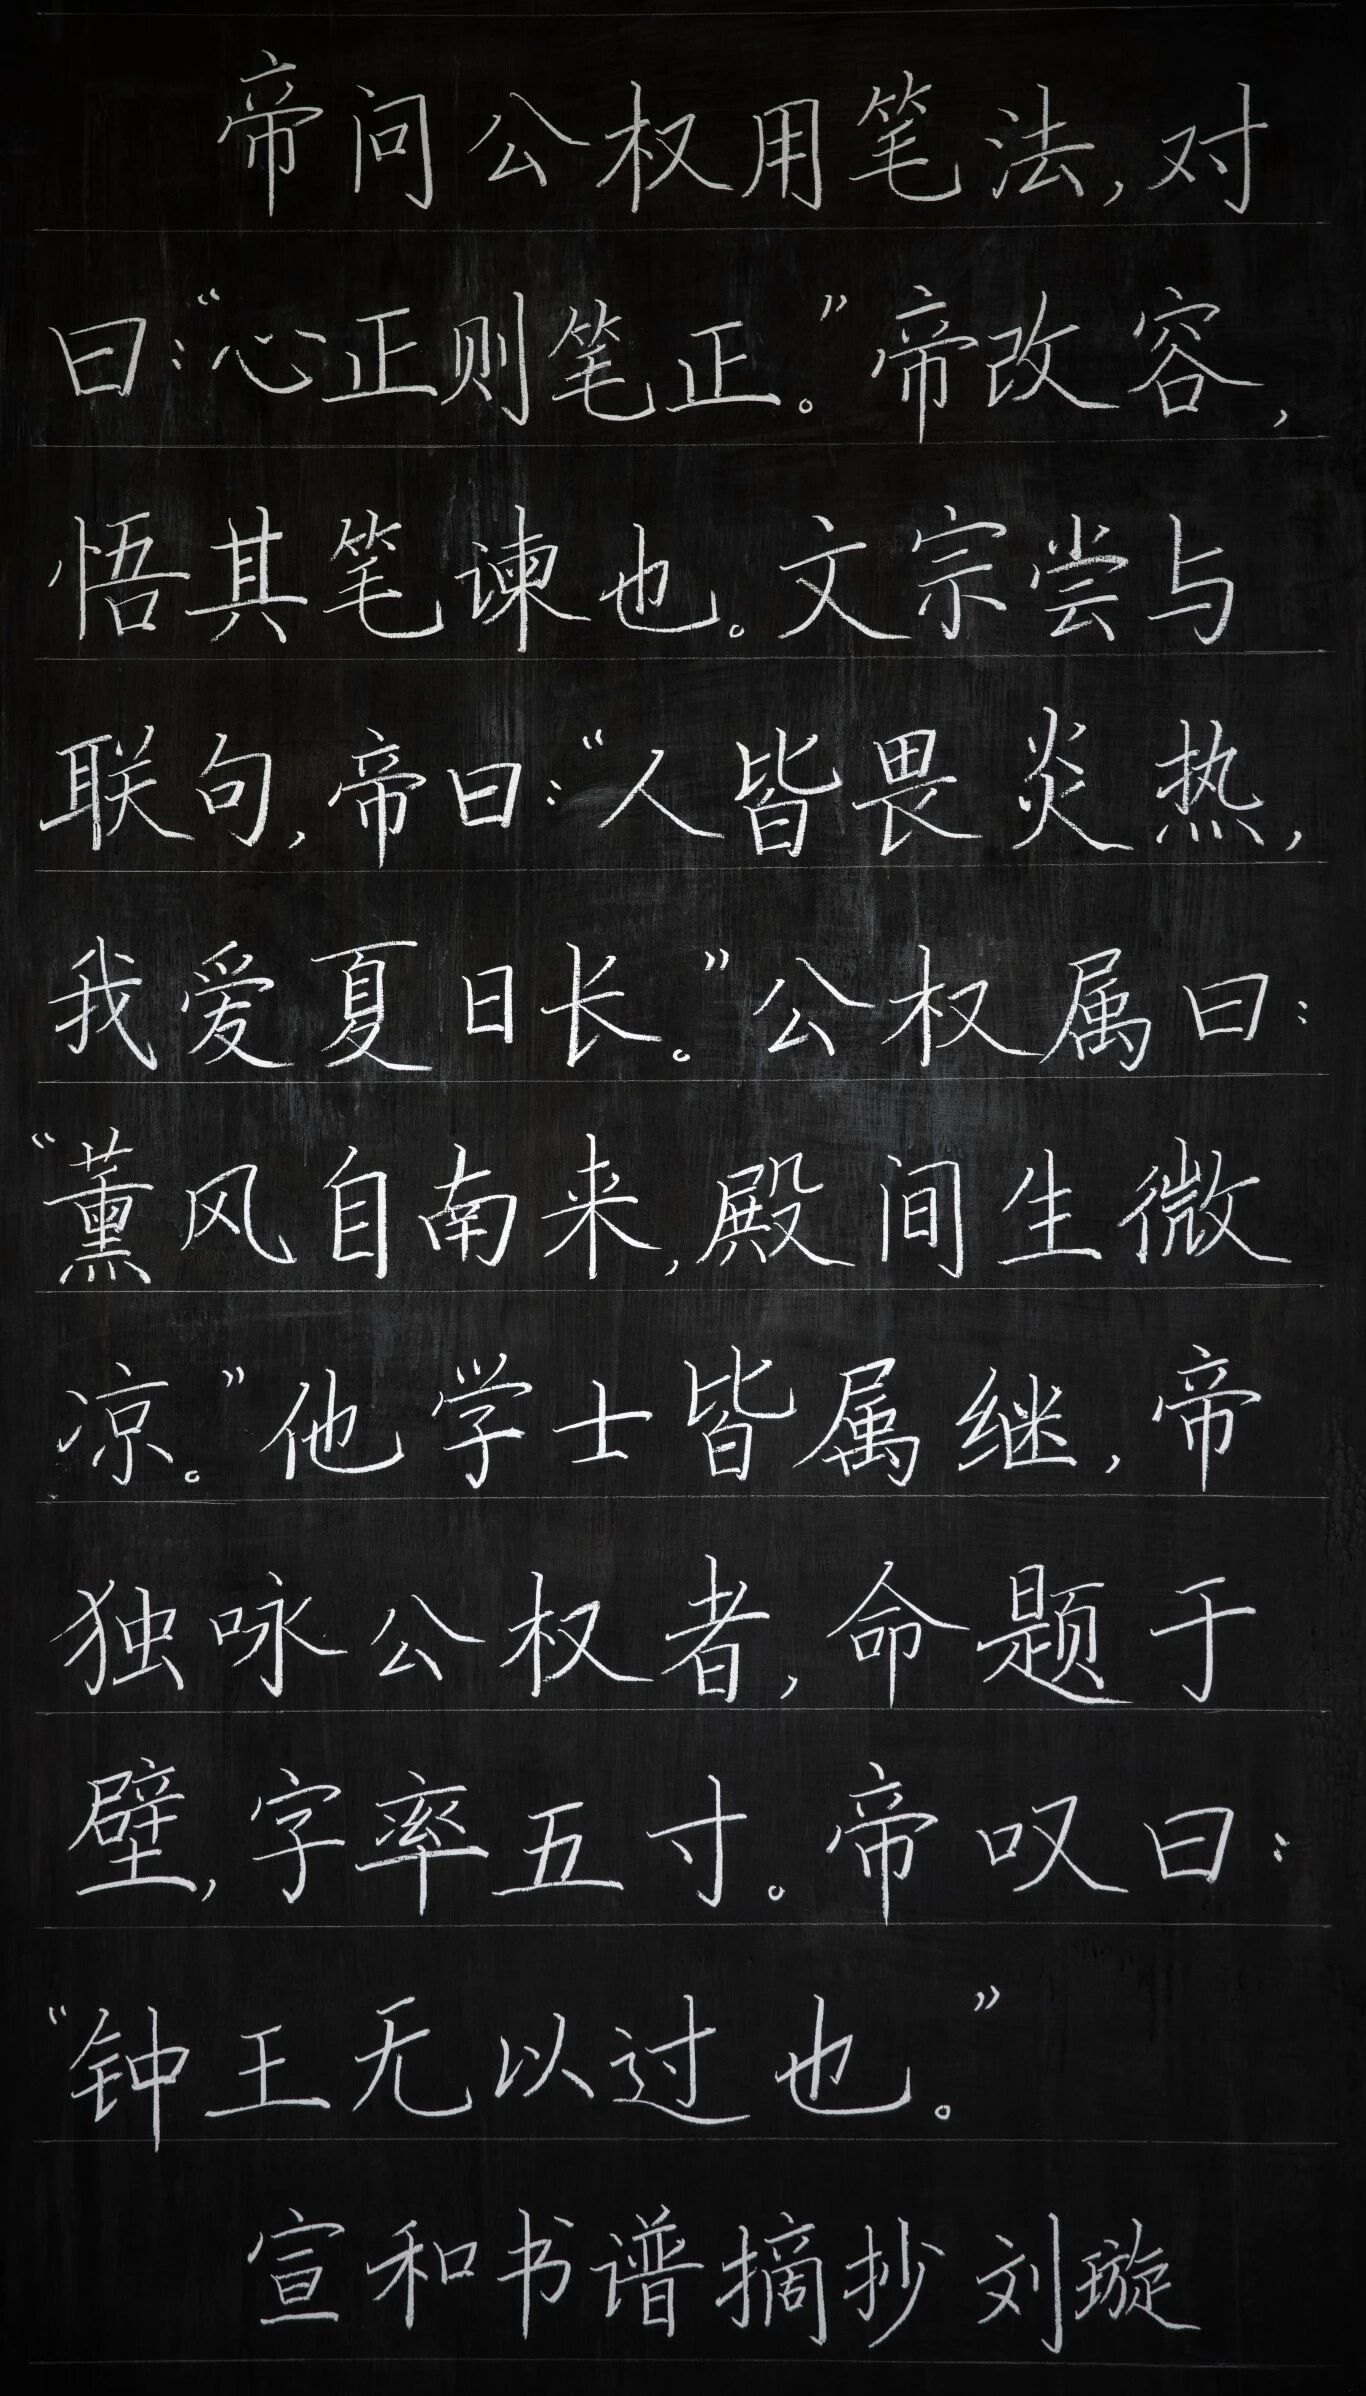 帝问公权用笔法,对
曰:“心正则笔正。”帝改容,
悟其笔谏也。文宗尝与
联句,帝曰:“人皆畏炎热,
我爱夏日长。”公权属曰:
“薰风自南来,殿间生微
凉。”他学士皆属继,帝
独咏公权者,命题于
壁,字率五寸。帝叹曰:
“钟王无以过也。”
宣和书谱摘抄 刘璇